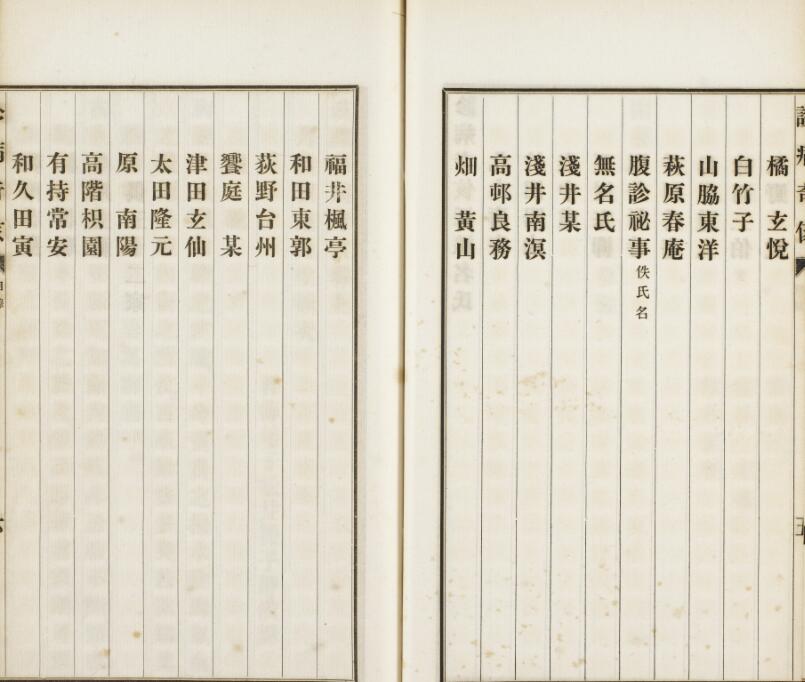 橘玄悅
白竹子
山脇東洋
萩原春庵
腹診祕事佚氏名
無名氏
淺井某
淺井南溟
高邨良務
畑黃山
福井楓亭
和田東郭
荻野台州
饗庭某
津田玄仙
太田隆元
原南陽
高階枳園
有持常安
和久田寅